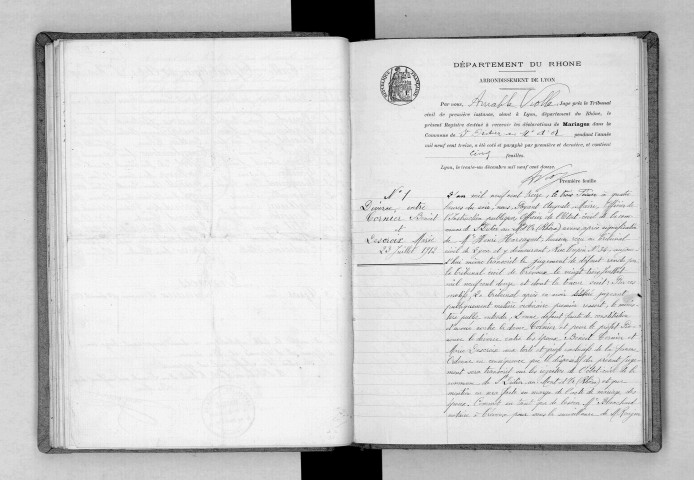 DÉPARTEMENT DU RHONE
ARRONDISSEMENT DE LYON
Par nous, Amable Viollet Juge près le Tribunal
civil de première instance, séant à Lyon, département du Rhône, le
présent Registre destiné à recevoir les déclarations de Mariages dans la
Commune de St Didier au Mt d'Or pendant l'année
mil neuf cent treize, a été coté et paraphé par première et dernière, et contient
cinq feuilles.
Lyon, le trente-un décembre mil neuf cent douze.
Première feuille
N° 1
Divorce entre
Cornier Benoit
et
Descroix Marie
23 Juillet 1912
L'an mil neuf cent treize, le trois Janvier à quatre
heures du soir, nous, Auguste Maire, Officier de
l'Instruction publique, Officier de l'Etat civil de la com
mune de St Didier au Mt d'Or (Rhône) avons après signification
de Me Henri huissier reçu au Tribunal
civil de Lyon et y demeurant Rue
transcrit le jugement de défaut rendu par
le tribunal civil de Trévoux le vingt trois Juillet
mil neuf cent douze et dont la teneur suit: Par ces
motifs Le Tribunal après en avoir délibéré jugeant
publiquement matière ordinaire premier ressort, le minis-
tère public entendu Donne défaut faute de constitution
d'avoué contre le Cornier et pour le profit Pro
nonce le divorce entre les époux Benoit Cornier et
Marie Descroix aux torts et griefs exclusifs de la femme
Ordonne en conséquence que le dispositif du présent juge
ment sera transcrit sur les registres de l'état civil de la
commune de St Didier au Mont d'Or (Rhône) et que
mention en sera faite en marge de l'acte de mariage des
époux. Commet en tant que de besoin Me Blanchard
notaire à Trévoux pour sous la surveillance de Mr